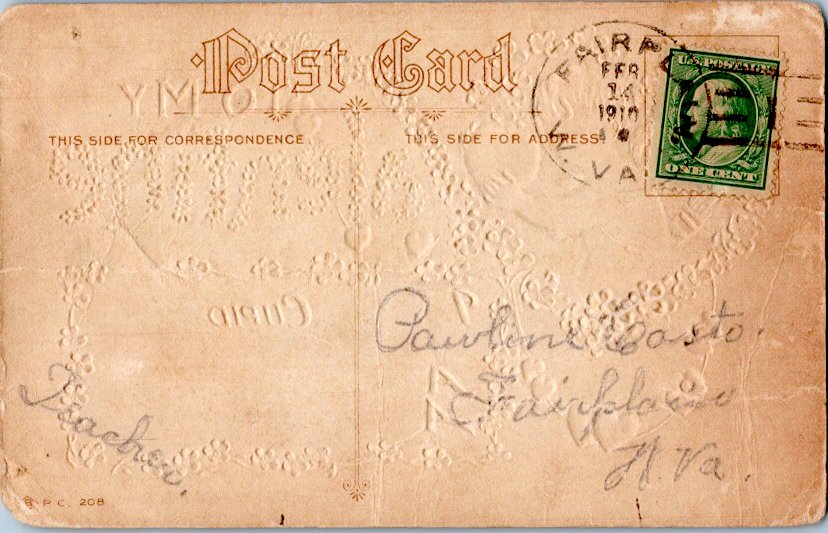 Post Card
THIS SIDE FOR CORRESPONDENCE
THIS SIDE FOR ADDRESS
FAIRP
FEB
14
1910
W. VA
U.S. POSTAGE
ONE CENT
TO MY
VALENTINE
CUPID
Pauline Casto.
Fairplain
W. Va.
Teacher.
S. P. C. 208